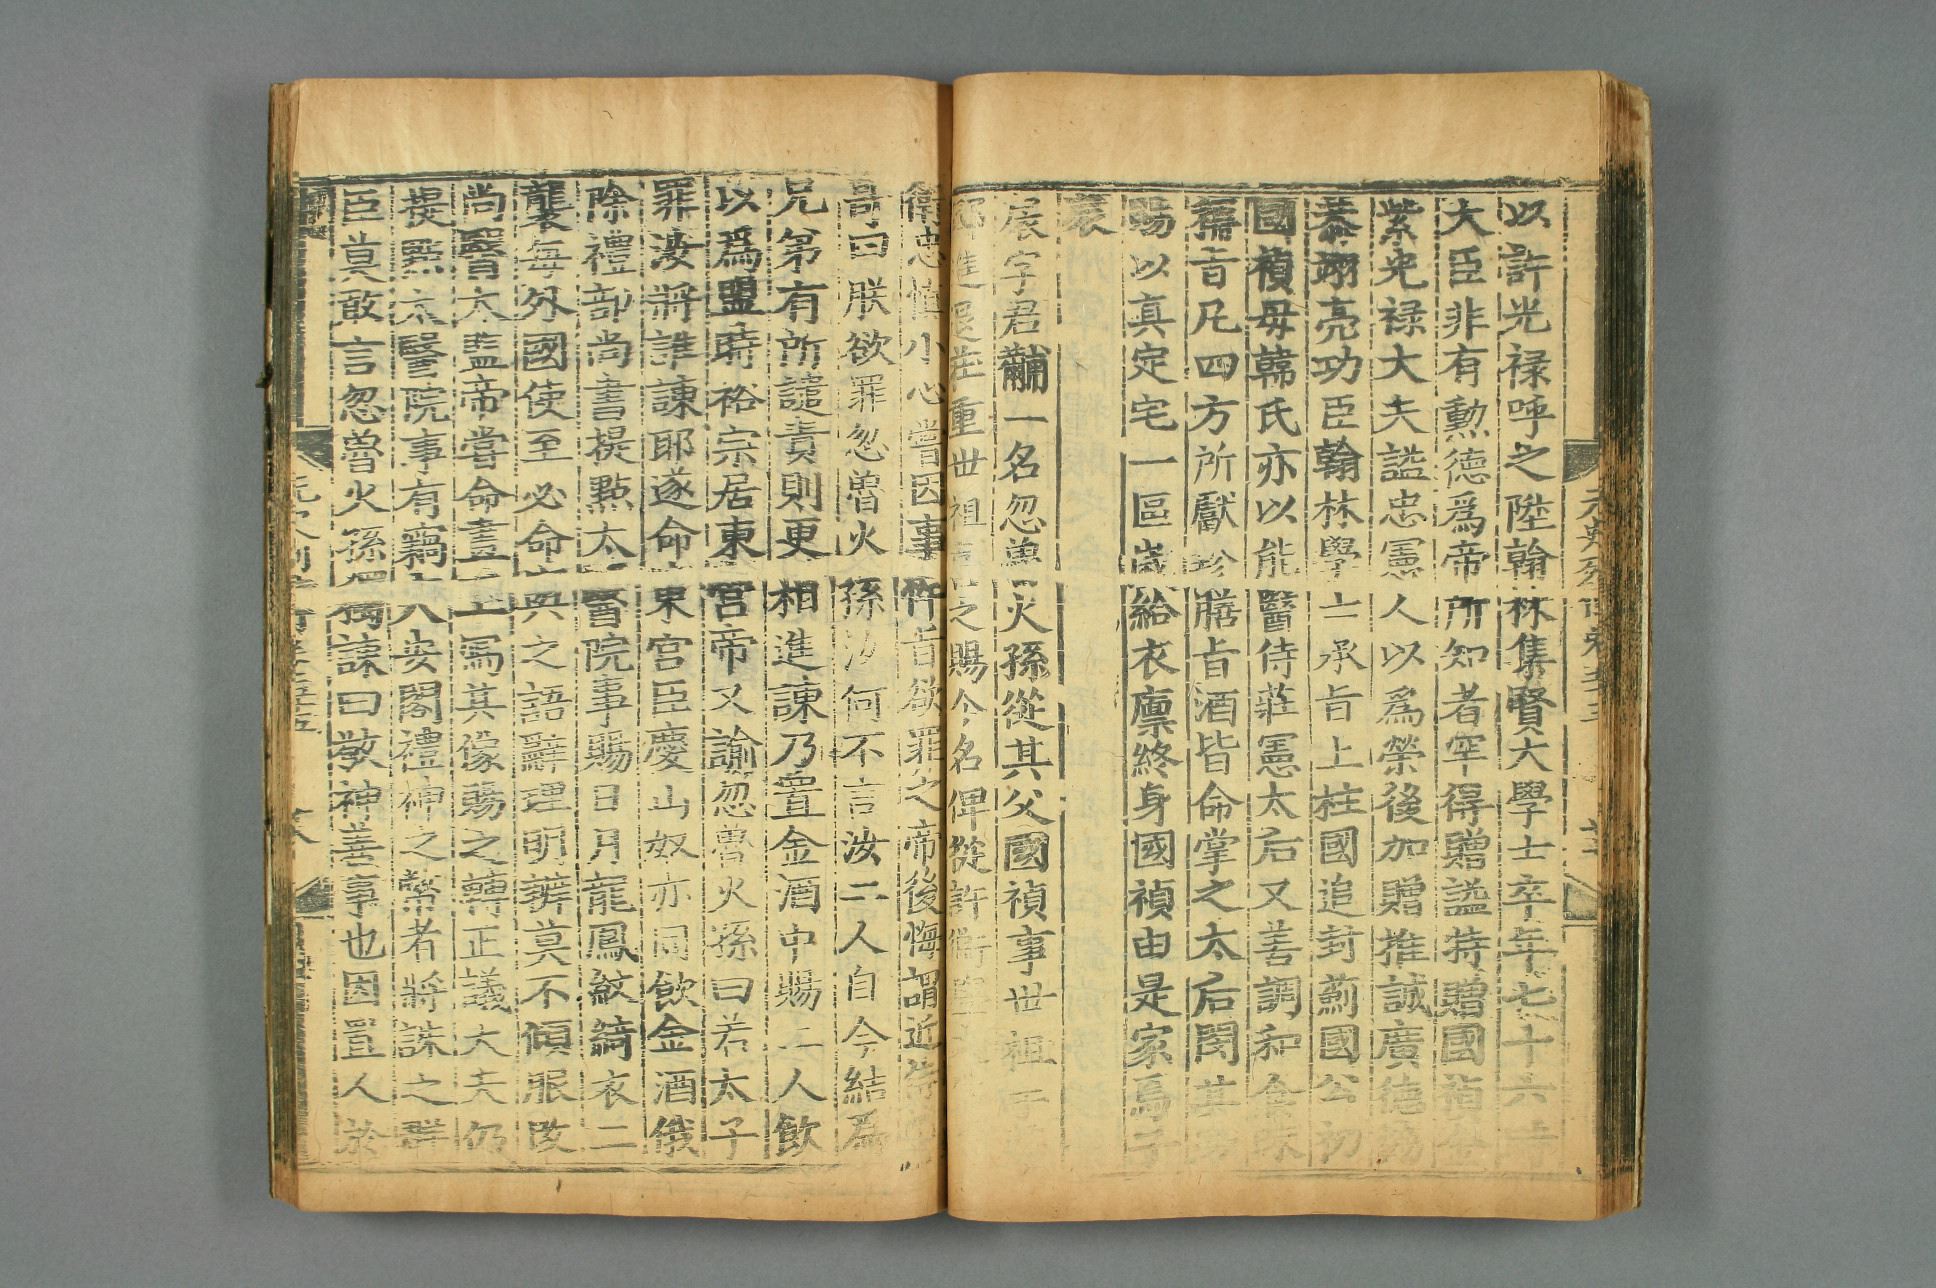 以許光禄呼之陞翰林集賢大學士卒年七十六時
大臣非有勲德爲帝所知者罕得贈謚特贈國禎金
紫光禄大夫謚忠憲人以爲榮後加贈推誠廣德協
恭翊亮功臣翰林學士承旨上柱國追封薊國公初
國禎母韓氏亦以能醫侍莊憲太后又善調和食味
稱旨凡四方所獻珍膳旨酒皆命掌之太后閔其
賜以真定宅一區歲給衣廪終身國禎由是家焉子
扆
扆字君黼一名忽魯火孫從其父國禎事世祖于
進退莊重世祖喜之賜今名俾從許衡
忠慎小心嘗因事忤旨欲罪之帝後悔謂近侍
哥曰朕欲罪忽魯火孫汝何不言汝二人自今結爲
兄弟有所譴責則更相進諫乃置金酒中賜二人飲
以爲盟時裕宗居東宮帝又諭忽魯火孫曰若太子
罪汝將誰諫耶遂命東宮臣慶山奴亦同飲金酒俄
除禮部尚書提點太醫院事賜日月龍鳳紋綺衣二
襲每外國使至必命與之語辭理明辨莫不傾服改
尚醫太監帝嘗命畫工寫其像賜之轉正議大夫仍
提點太醫院事有竊大安閣禮神之幣者將誅之群
臣莫敢言忽魯火孫獨諫曰敬神善事也因置人於